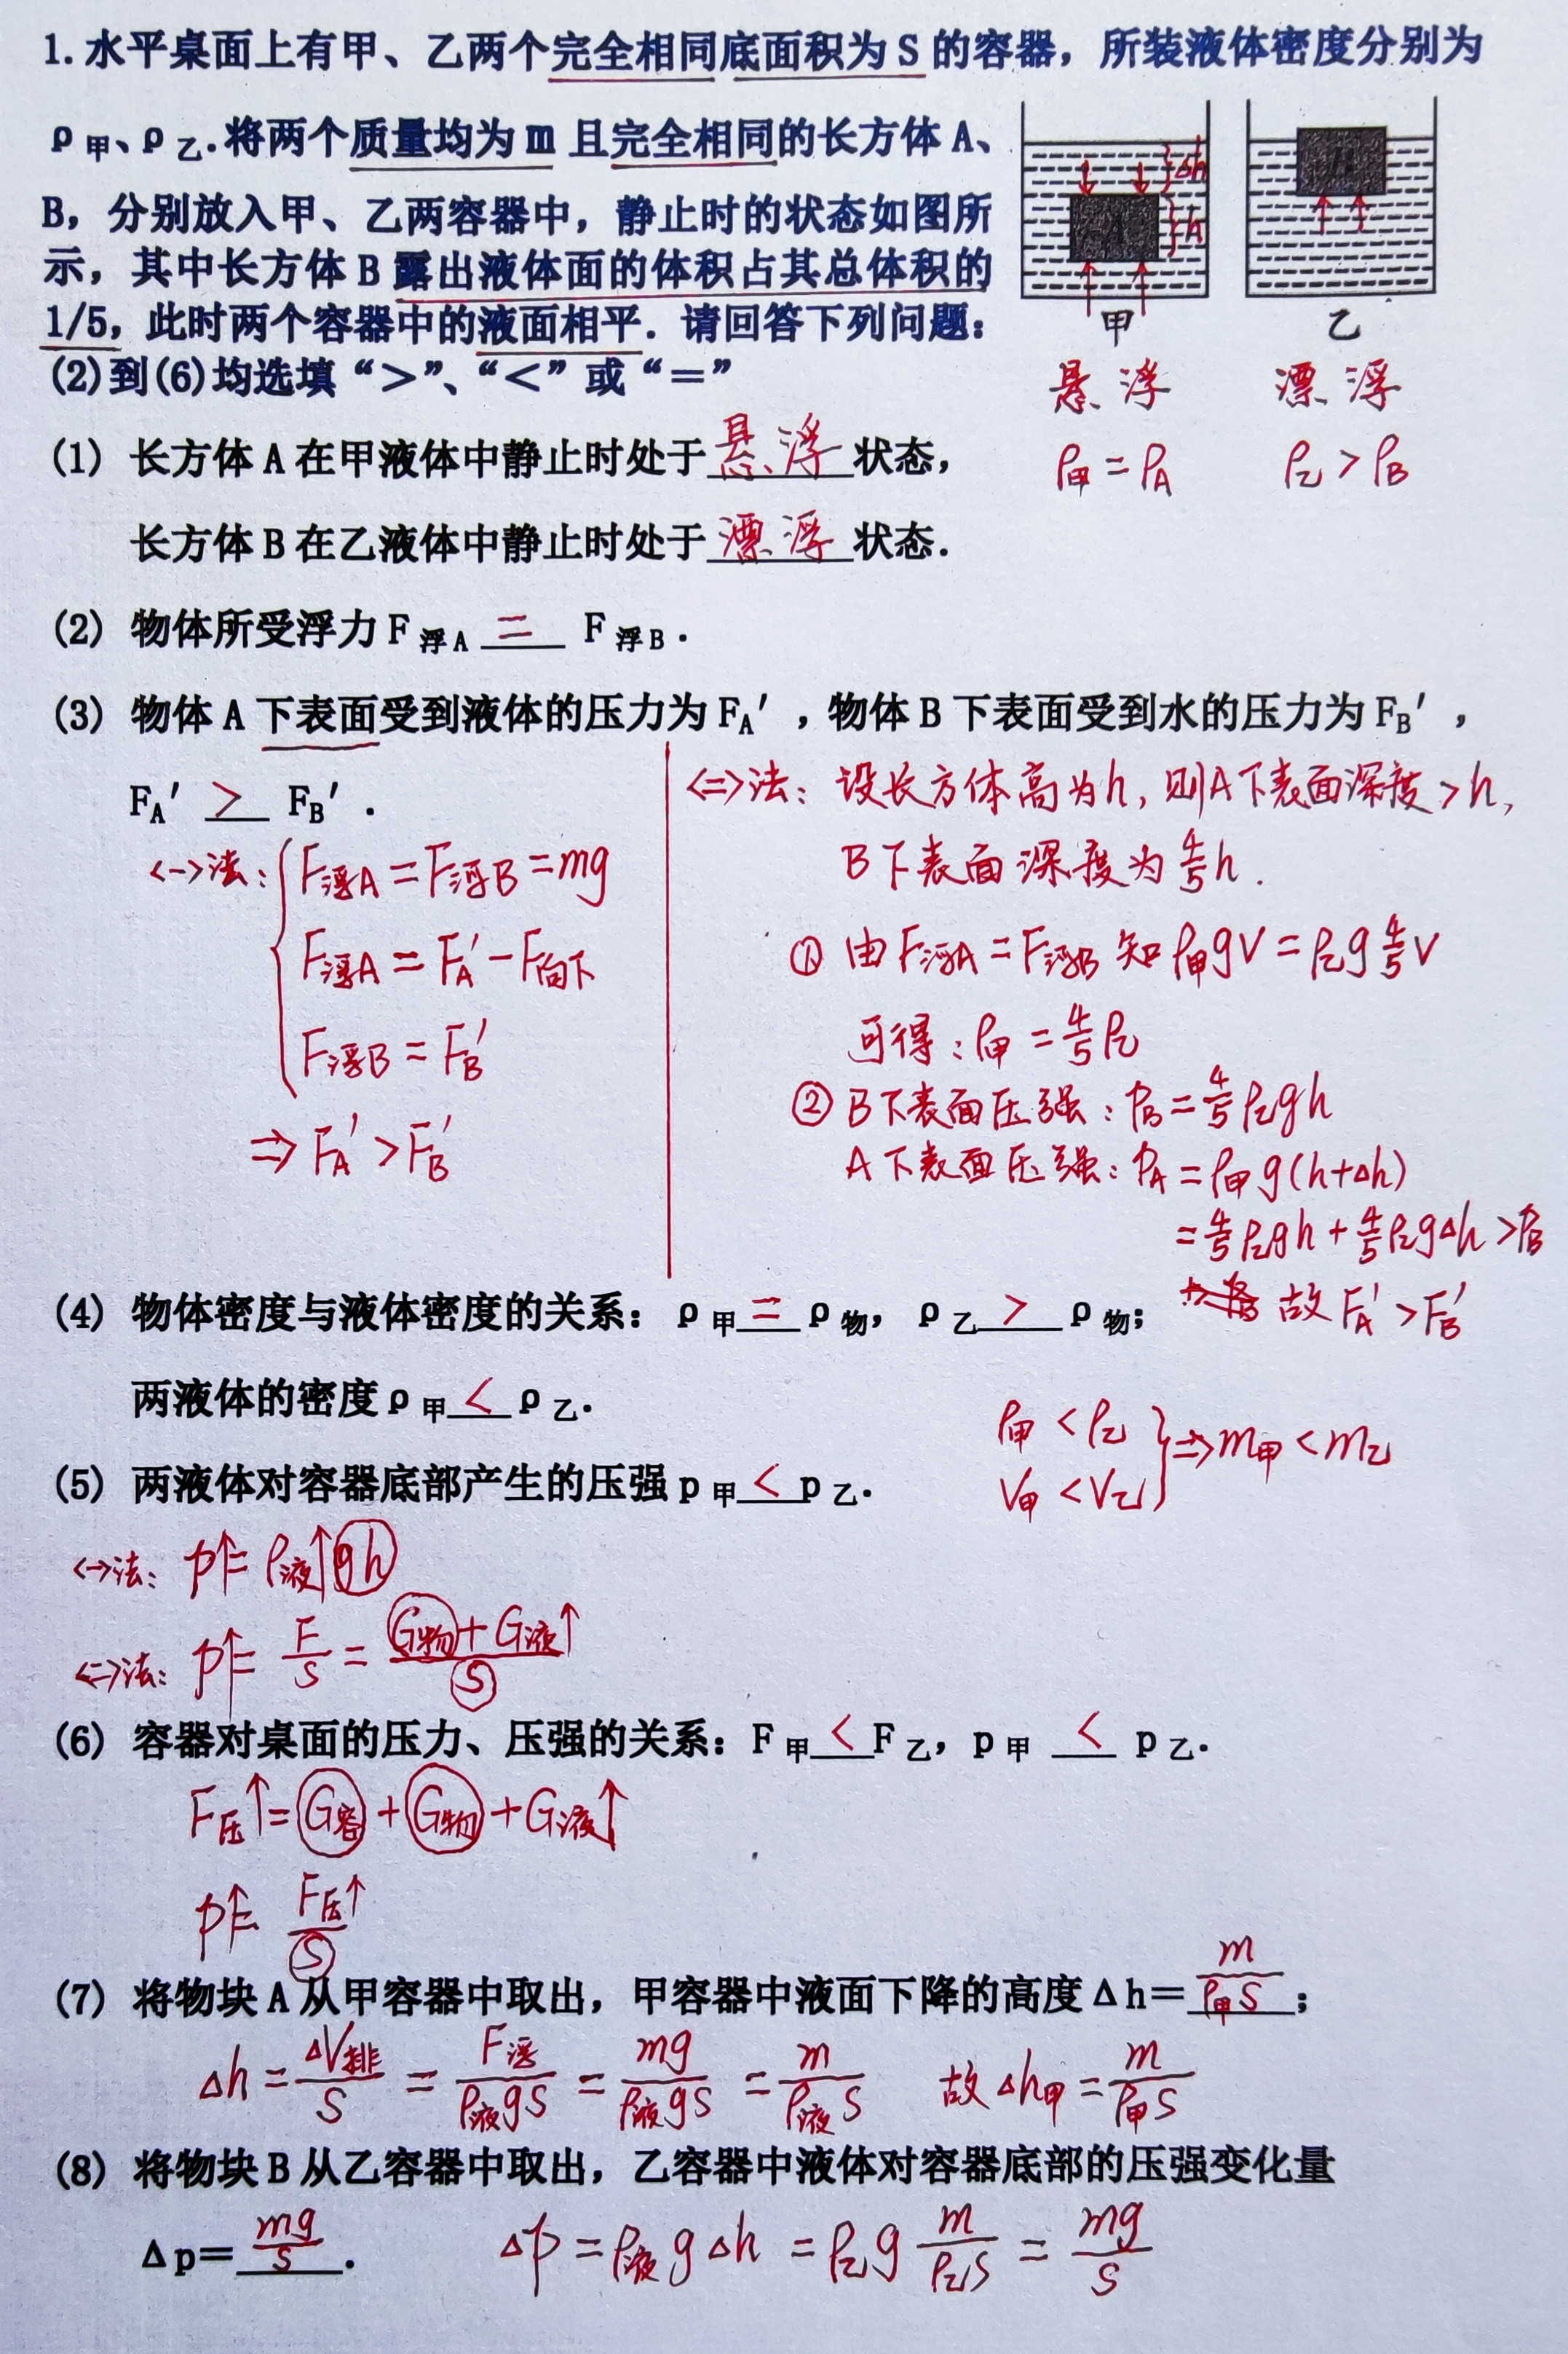 1. 水平桌面上有甲、乙两个完全相同底面积为 S 的容器，所装液体密度分别为
ρ甲、ρ乙. 将两个质量均为 m 且完全相同的长方体 A、
B，分别放入甲、乙两容器中，静止时的状态如图所
示，其中长方体 B 露出液体面的体积占其总体积的
1/5，此时两个容器中的液面相平．请回答下列问题：
(2)到(6)均选填“＞”、“＜”或“＝”
Δh
A
h
B
甲 乙
悬浮 漂浮
ρ甲=ρA ρ乙>ρB
(1) 长方体 A 在甲液体中静止时处于悬浮状态，
长方体 B 在乙液体中静止时处于漂浮状态．
(2) 物体所受浮力 F浮A = F浮B．
(3) 物体 A 下表面受到液体的压力为 FA′，物体 B 下表面受到水的压力为 FB′，
FA′ > FB′．
<一>法：
F浮A=F浮B=mg
F浮A=FA′-F向下
F浮B=FB′
⇒FA′>FB′
<二>法：设长方体高为h，则A下表面深度>h，
B下表面深度为4/5h.
① 由F浮A=F浮B 知 ρ甲gV=ρ乙g4/5V
可得：ρ甲=4/5ρ乙
② B下表面压强：pB=4/5ρ乙gh
A下表面压强：pA=ρ甲g(h+Δh)
=4/5ρ乙gh+4/5ρ乙gΔh>pB
故FA′>FB′
(4) 物体密度与液体密度的关系：ρ甲=ρ物，ρ乙>ρ物；
两液体的密度ρ甲<ρ乙．
ρ甲<ρ乙
V甲<V乙
}⇒m甲<m乙
(5) 两液体对容器底部产生的压强 p甲<p乙．
<一>法：p↑=ρ液↑gh
<二>法：p↑=F/S=(G物+G液↑)/S
(6) 容器对桌面的压力、压强的关系：F甲<F乙，p甲 < p乙．
F压↑=G容+G物+G液↑
p↑=F压↑/S
(7) 将物块 A 从甲容器中取出，甲容器中液面下降的高度Δh=m/ρ甲S；
Δh=ΔV排/S=F浮/ρ液gS=mg/ρ液gS=m/ρ液S 故Δh甲=m/ρ甲S
(8) 将物块 B 从乙容器中取出，乙容器中液体对容器底部的压强变化量
Δp=mg/S．
Δp=ρ液gΔh=ρ乙g m/ρ乙S=mg/S